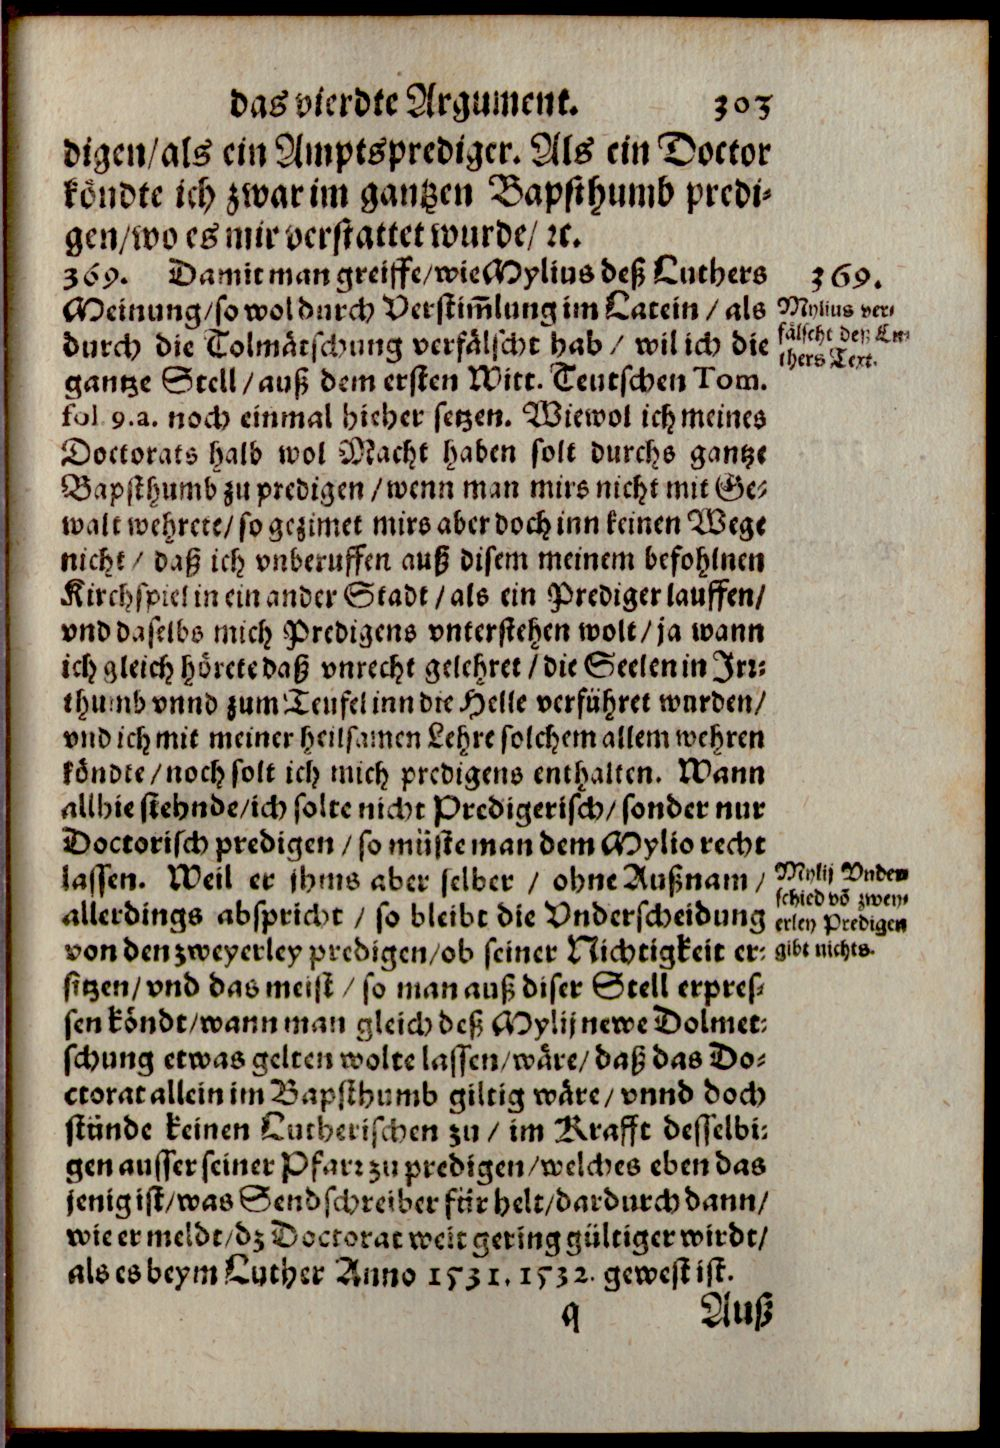 das vierdte Argument. 303
digen/als ein Amptsprediger. Als ein Doctor
köndte ich zwar im gantzen Bapsthumb predi-
gen/wo es mir verstattet wurde/ ꝛc.
369. Damit man greiffe/wie Mylius deß Luthers
369.
Meinung/so wol durch Verstim̃lung im Latein / als
durch die Tolmätschung verfälscht hab / wil ich die
Mylius ver-
fälscht deß Lu-
thers Text.
gantze Stell/auß dem ersten Witt. Teutschen Tom.
fol. 9.a. noch einmal hieher setzen. Wiewol ich meines
Doctorats halb wol Macht haben solt durchs gantze
Bapsthumb zu predigen /wenn man mirs nicht mit Ge-
walt wehrete/so gezimet mirs aber doch inn keinen Wege
nicht / daß ich vnberuffen auß disem meinem befohlnen
Kirchspiel in ein ander Stadt / als ein Prediger lauffen/
vnd daselbs mich Predigens vnterstehen wolt/ja wann
ich gleich hörete daß vnrecht gelehret /die Seelen in Irr-
thumb vnnd zum Teufel inn die Helle verführet wurden/
vnd ich mit meiner heilsamen Lehre solchem allem wehren
köndte/noch solt ich mich predigens enthalten. Wann
allhie stehnde/ich solte nicht Predigerisch/sonder nur
Doctorisch predigen /so müste man dem Mylio recht
lassen. Weil er jhms aber selber / ohne Außnam /
allerdings abspricht / so bleibt die Vnderscheidung
Mylij Vnder-
schied vō zwey-
erley Predigen
gibt nichts.
von den zweyerley predigen/ob seiner Nichtigkeit er-
sitzen/vnd das meist / so man auß diser Stell erpres-
sen köndt/wann man gleich deß Mylij newe Dolmet-
schung etwas gelten wolte lassen/wäre/daß das Do-
ctorat allein im Bapsthumb giltig wäre/vnnd doch
stünde keinen Lutherischen zu / im Krafft desselbi-
gen ausser seiner Pfarr zu predigen/welches eben das
jenig ist/was Sendschreiber für helt/dardurch dann/
wie er meldt/dz Doctorat weit gering gültiger wirdt/
als es beym Luther Anno 1531. 1532. gewest ist.
q Auß